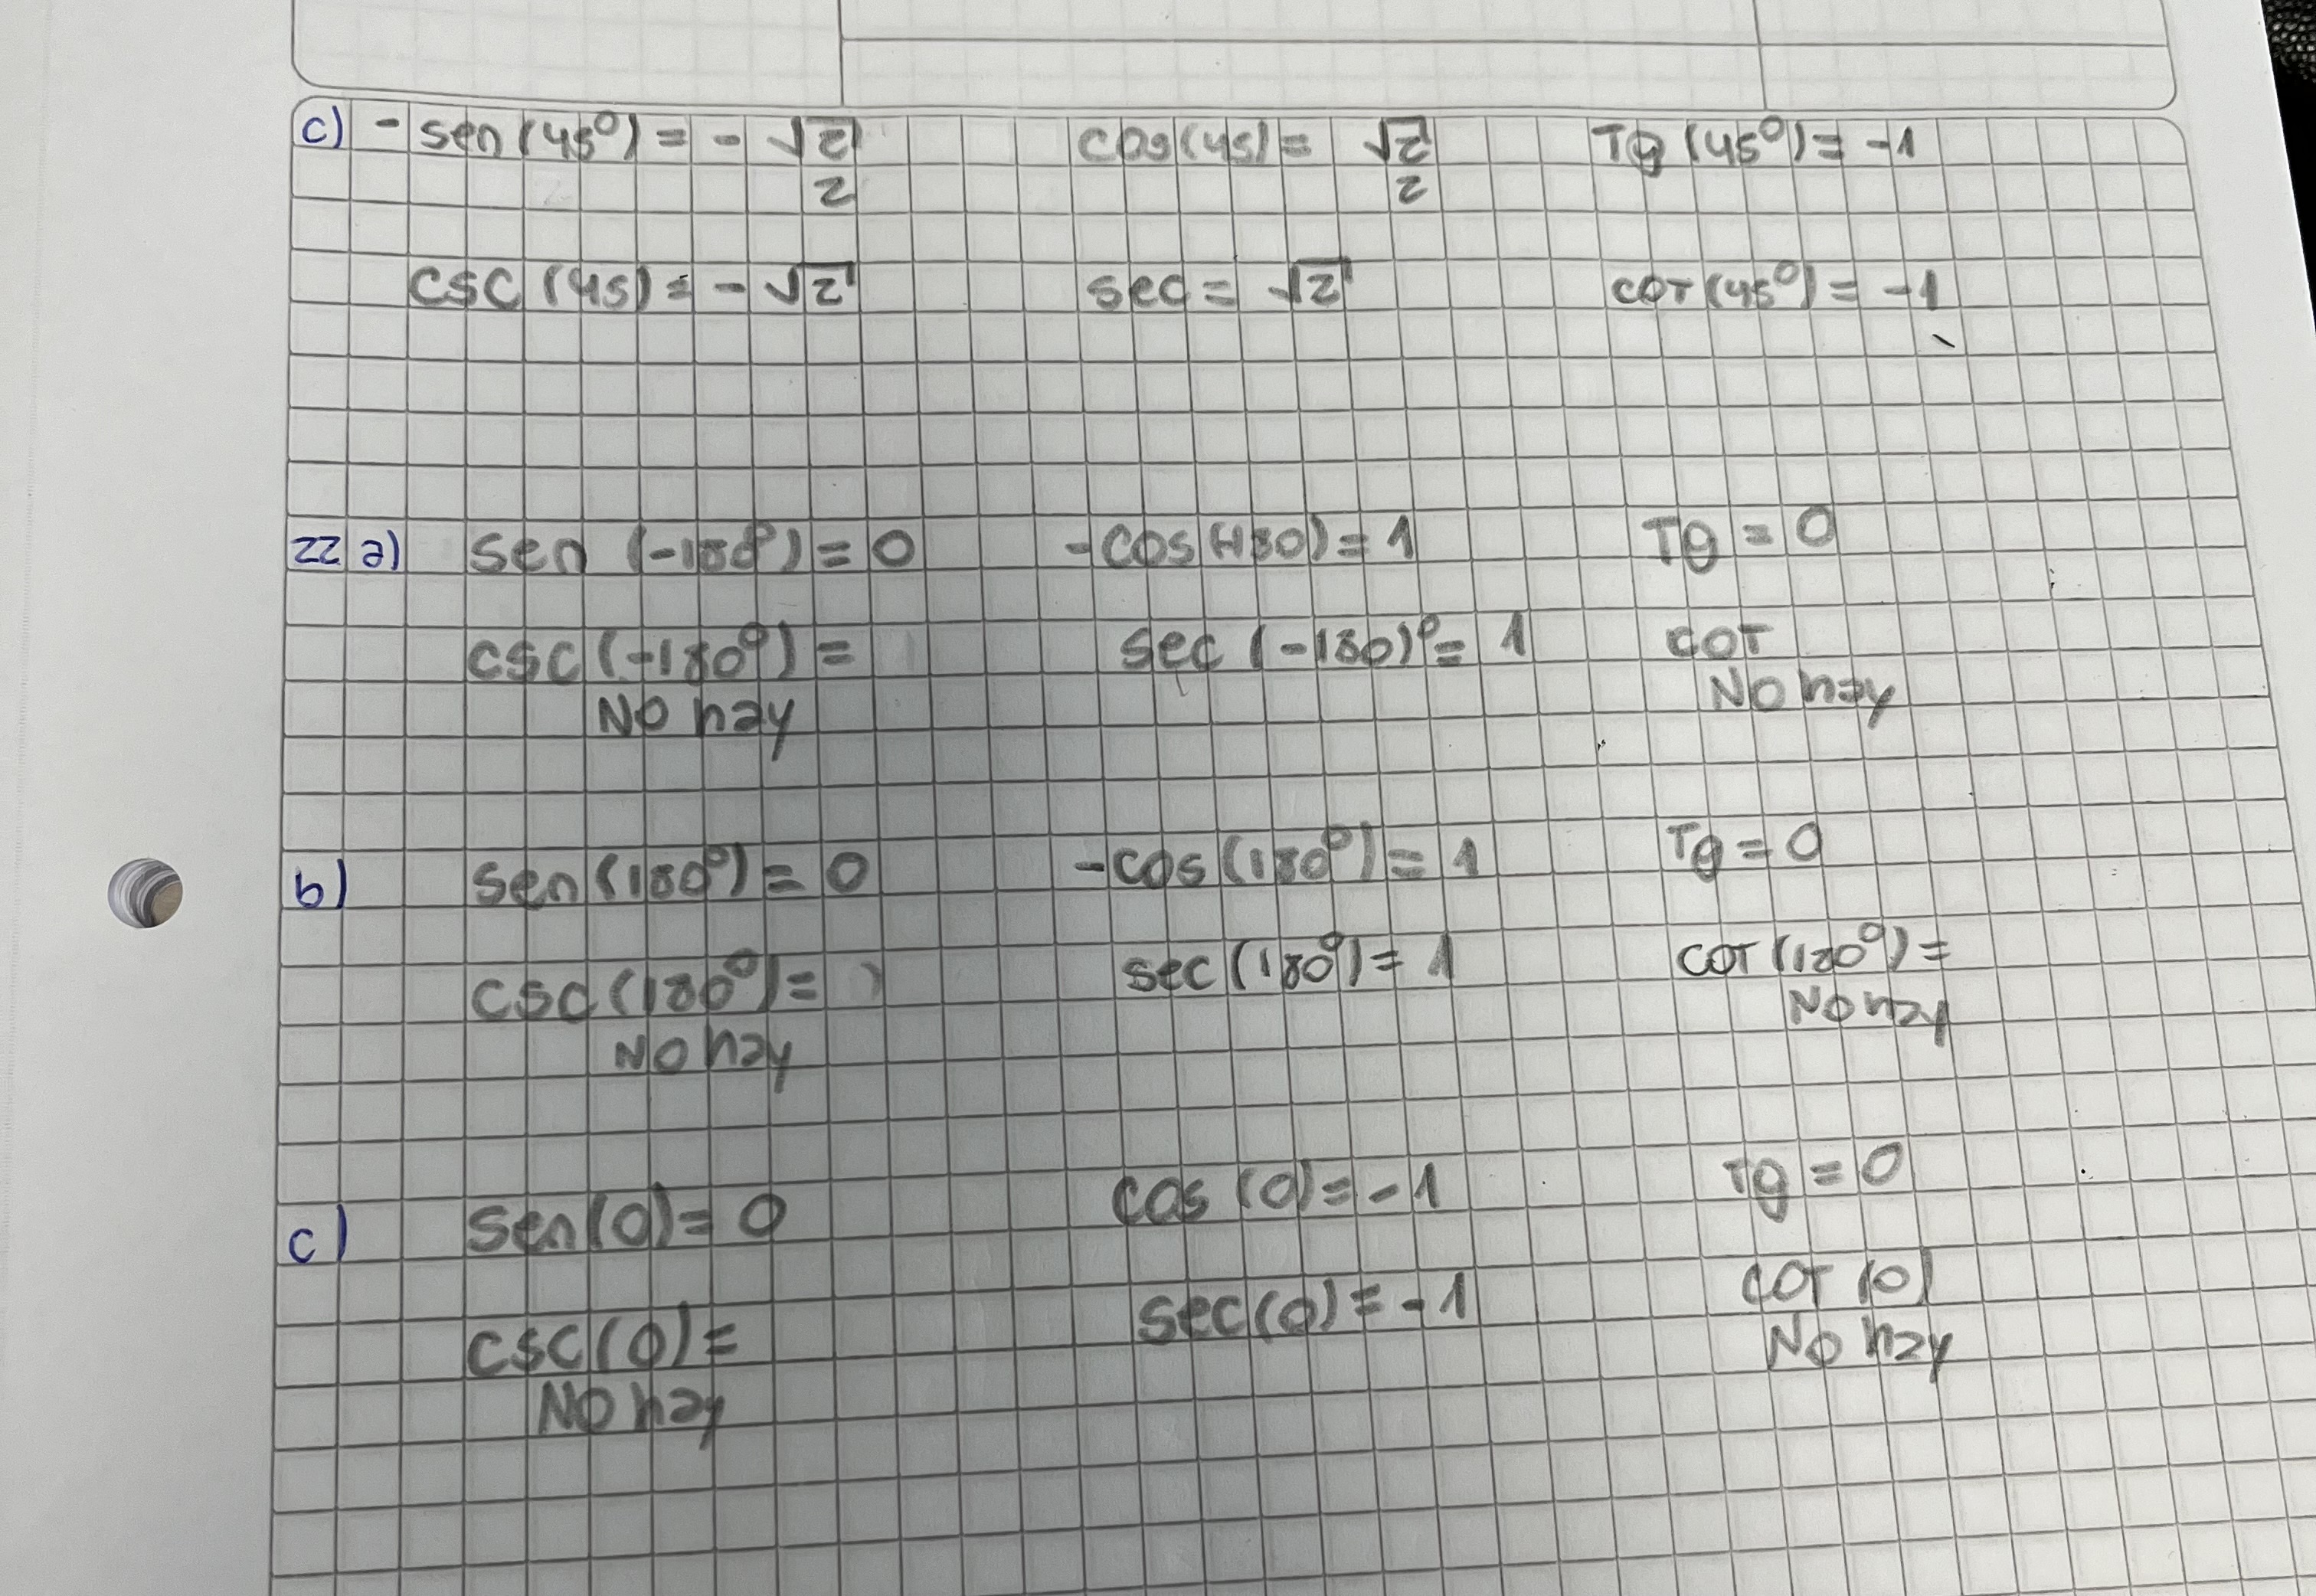 c) - sen (45°) = - √2/2 cos (45) = √2/2 Tg (45°) = -1
csc (45) = - √2 sec = √2 cot (45°) = -1
22 a) sen (-180°) = 0 -cos(-180) = 1 Tg = 0
csc (-180°) = sec (-180)° = 1 COT
No hay No hay
b) sen (180°) = 0 -cos (180°) = 1 Tg = 0
csc (180°) = sec (180°) = 1 COT (180°) =
No hay No hay
c) sen (0) = 0 cos (0) = -1 Tg = 0
csc (0) = sec (0) = -1 COT (0)
No hay No hay